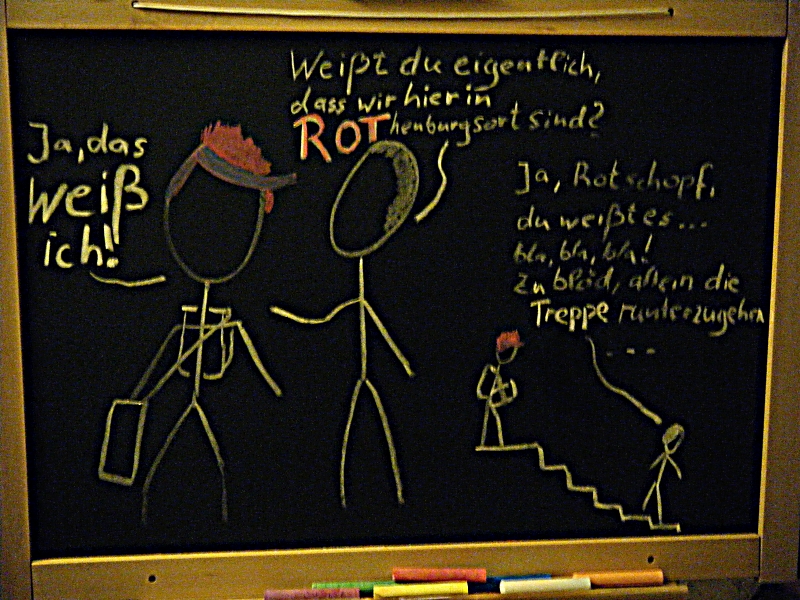 Weißt du eigentlich,
dass wir hier in
ROThenburgsort sind?
Ja, das
weiß
ich!
Ja, Rotschopf,
du weißt es...
bla, bla, bla!
Zu blöd, allein die
Treppe runterzugehen
...